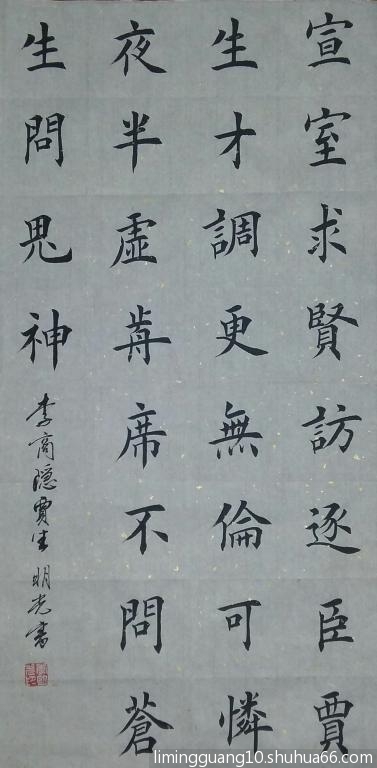 宣室求賢訪逐臣賈
生才調更無倫可憐
夜半虛歬席不問蒼
生問鬼神
李商隱賈生 明光書
limingguang10.shuhua66.com